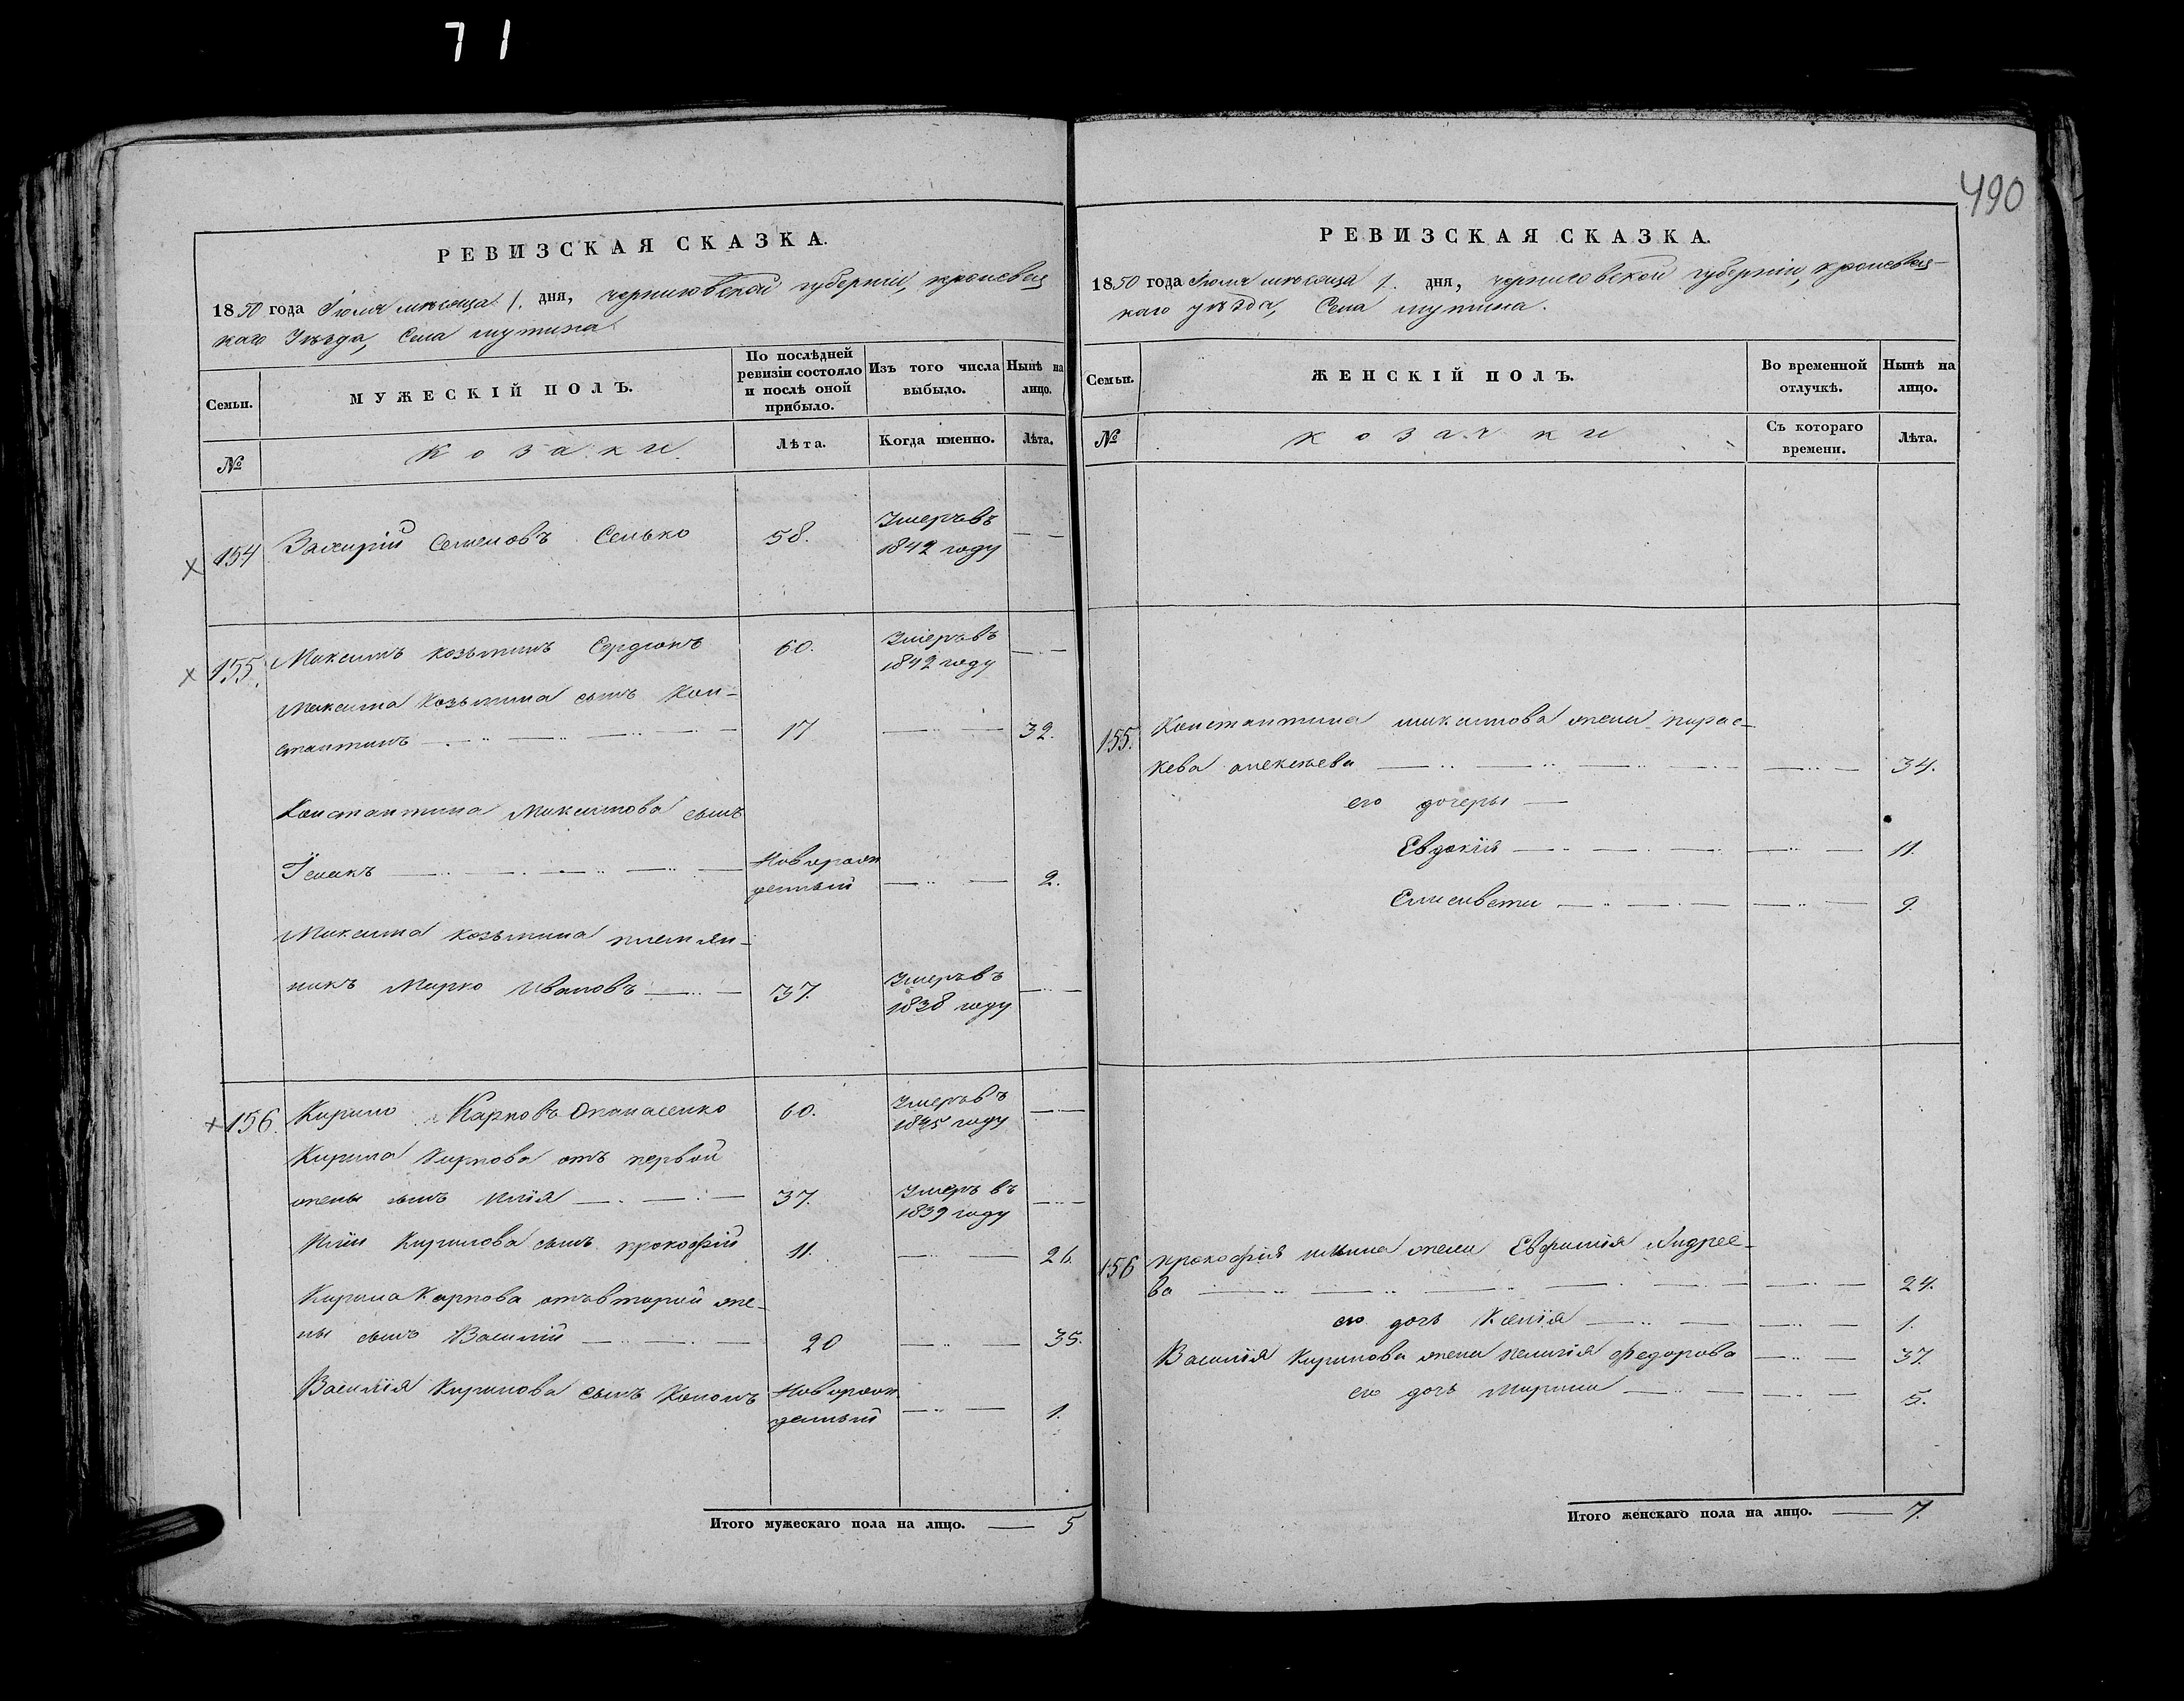 71
490
РЕВИЗСКАЯ СКАЗКА.
1850 года Іюля мѣсяца 1. дня, черниговской губерніи, кролевец
каго Уѣзда, Села мутина
Семьи.
МУЖЕСКІЙ ПОЛЪ.
По послѣдней
ревизіи состояло
и послѣ оной
прибыло.
Изъ того числа
выбыло.
Нынѣ на
лицо.
№
Козаки
Лѣта.
Когда именно.
Лѣта.
154 Захарій Семеновъ Сенько 58. Умеръ въ
1842 году
155. Максимъ козьминъ Сердюкъ 60. Умеръ въ
1842 году
Максима Козьмина сынъ Кон-
стантинъ 17 32.
Константина Максимова сынъ
Новорож
денный 2.
Максима козьмина племян-
никъ Марко Ивановъ 37. Умеръ въ
1838 году
156. Кирило Карповъ Опанасенко 60. Умеръ въ
1845 году
Кирила Карпова отъ первой
жены сынъ Илія 37. Умеръ въ
1839 году
Иліи Кирилова сынъ прокофій 11. 26.
Кирила Карпова отъ второй же-
ны сынъ Василій 20 35.
Василія Кирилова сынъ Кононъ Новорож
денный 1.
Итого мужескаго пола на лицо. 5
РЕВИЗСКАЯ СКАЗКА.
1850 года Іюля мѣсяца 1. дня, черниговской губерніи, кролевец-
каго уѣзда, Села мутина.
Семьи.
ЖЕНСКІЙ ПОЛЪ.
Во временной
отлучкѣ.
Нынѣ на
лицо.
№
козачки
Съ котораго
времени.
Лѣта.
155. Константина максимова жена парас-
кева алексѣева 34.
его дочеры
Евдокія 11.
Елисавета 9.
156 прокофія ильина жена Евфимія Андрее-
ва 24.
его дочь Ксенія 1.
Василія Кирилова жена пелагія Федорова 37.
его дочь Марина 5.
Итого женскаго пола на лицо. 7.